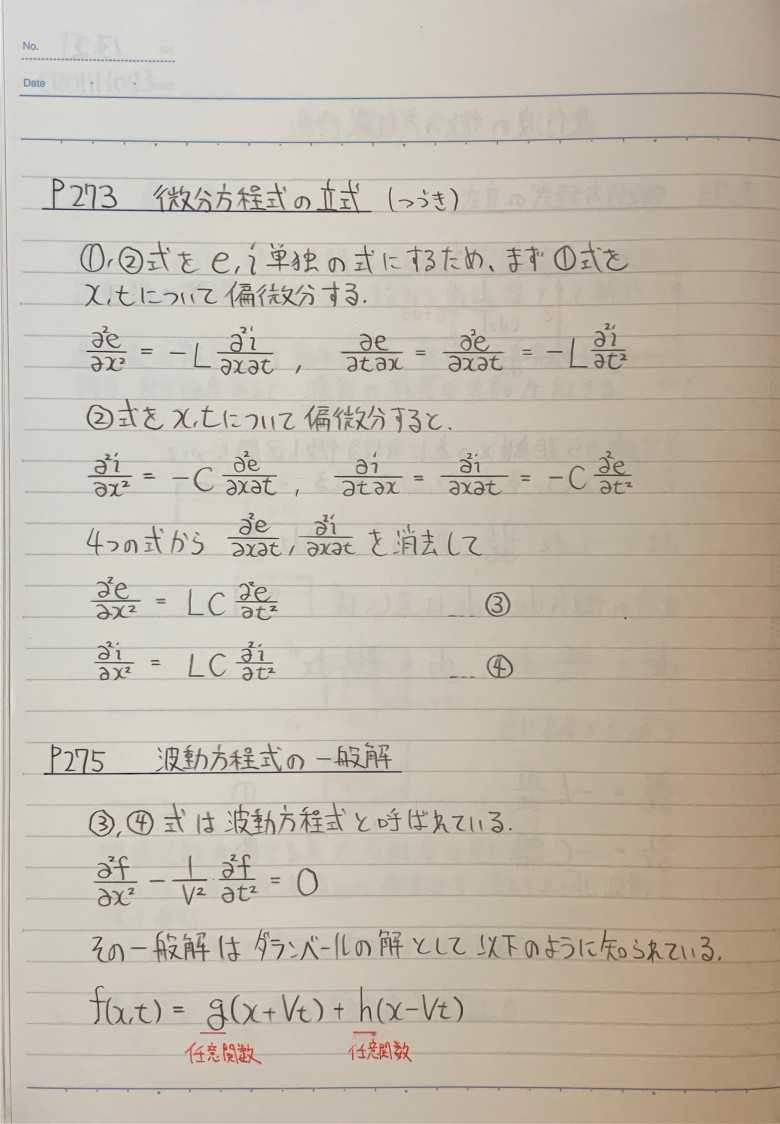 No.
Date
P273 微分方程式の立式 (つづき)
①,②式を e, i 単独の式にするため、まず①式を
x,tについて偏微分する.
∂²e/∂x² = -L ∂²i/∂x∂t , ∂e/∂t∂x = ∂²e/∂x∂t = -L ∂²i/∂t²
②式を x,tについて偏微分すると.
∂²i/∂x² = -C ∂²e/∂x∂t , ∂i/∂t∂x = ∂²i/∂x∂t = -C ∂²e/∂t²
4つの式から ∂²e/∂x∂t, ∂²i/∂x∂t を消去して
∂²e/∂x² = LC ∂²e/∂t² ... ③
∂²i/∂x² = LC ∂²i/∂t² ... ④
P275 波動方程式の一般解
③,④式は波動方程式と呼ばれている.
∂²f/∂x² - 1/V² ∂²f/∂t² = 0
その一般解はダランベールの解として以下のように知られている.
f(x,t) = g(x+Vt) + h(x-Vt)
任意関数 任意関数